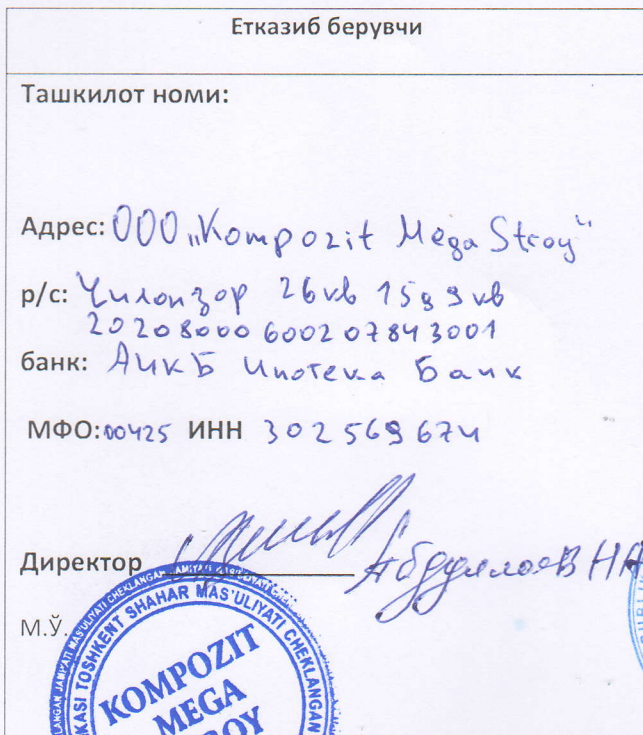 Етказиб берувчи
Ташкилот номи:
Адрес: ООО „Kompozit Mega Stroy“
р/с: Чилонзор 26кв 15д 9кв
20208000600207843001
банк: АИКБ Ипотека Банк
МФО: 00425 ИНН 302569674
Директор Абдуллаев НА
М.Ў.
TOSHKENT SHAHAR MAS'ULIYATI CHEKLANGAN
KOMPOZIT
MEGA